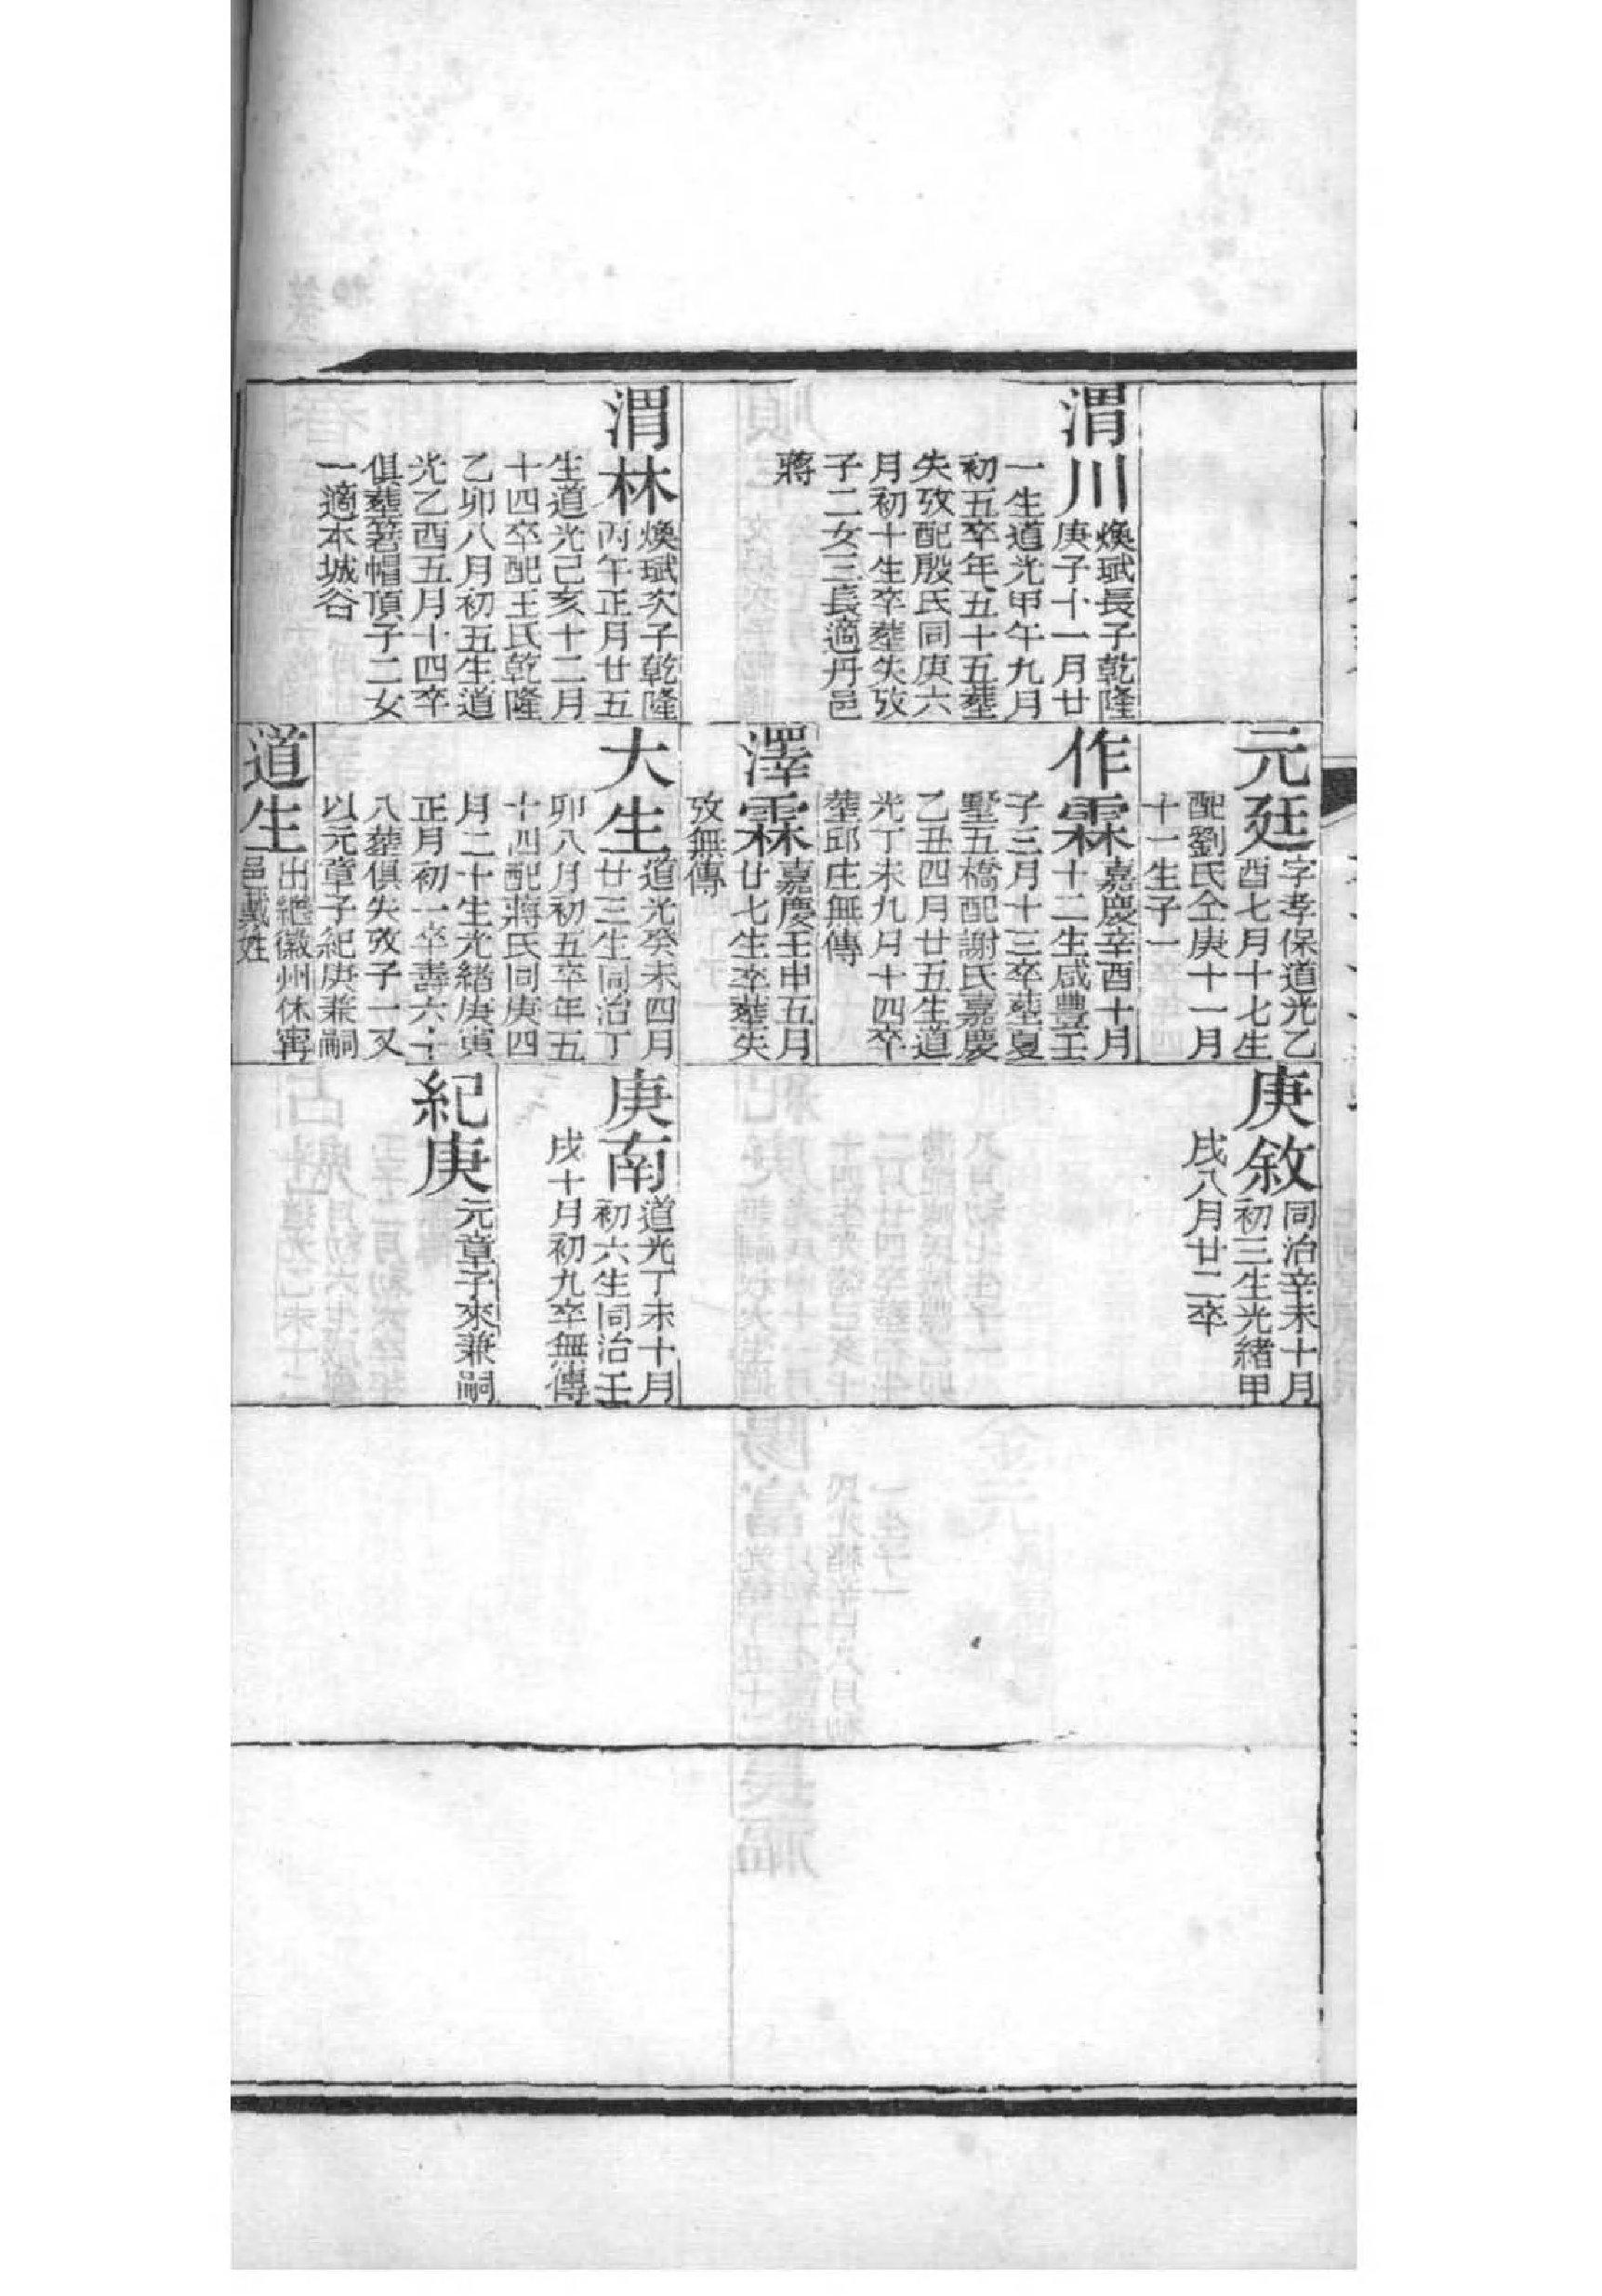 渭川
煥珷長子乾隆
庚子十一月廿
一生道光甲午九月
初五卒年五十五塟
失攷配殷氏同庚六
月初十生卒塟失攷
子二女三長適丹邑
蔣
渭林
煥珷次子乾隆
丙午正月廿五
生道光己亥十二月
十四卒配王氏乾隆
乙卯八月初五生道
光乙酉五月十四卒
俱塟箬帽頂子二女
一適本城谷
元廷
字孝保道光乙
酉七月十七生
配劉氏仝庚十一月
十一生子一
作霖
嘉慶辛酉十月
十二生咸豐壬
子三月十三卒塟夏
墅五橋配謝氏嘉慶
乙丑四月廿五生道
光丁未九月十四卒
塟邱庄無傳
澤霖
嘉慶壬申五月
廿七生卒塟失
攷無傳
大生
道光癸未四月
廿三生同治丁
卯八月初五卒年五
十四配蔣氏同庚四
月二十生光緒庚寅
正月初一卒壽六十
八塟俱失攷子一又
以元章子紀庚兼嗣
道生
出繼徽州休甯
邑戴姓
庚敘
同治辛未十月
初三生光緒甲
戌八月廿二卒
庚南
道光丁未十月
初六生同治壬
戌十月初九卒無傳
紀庚
元章子來兼嗣